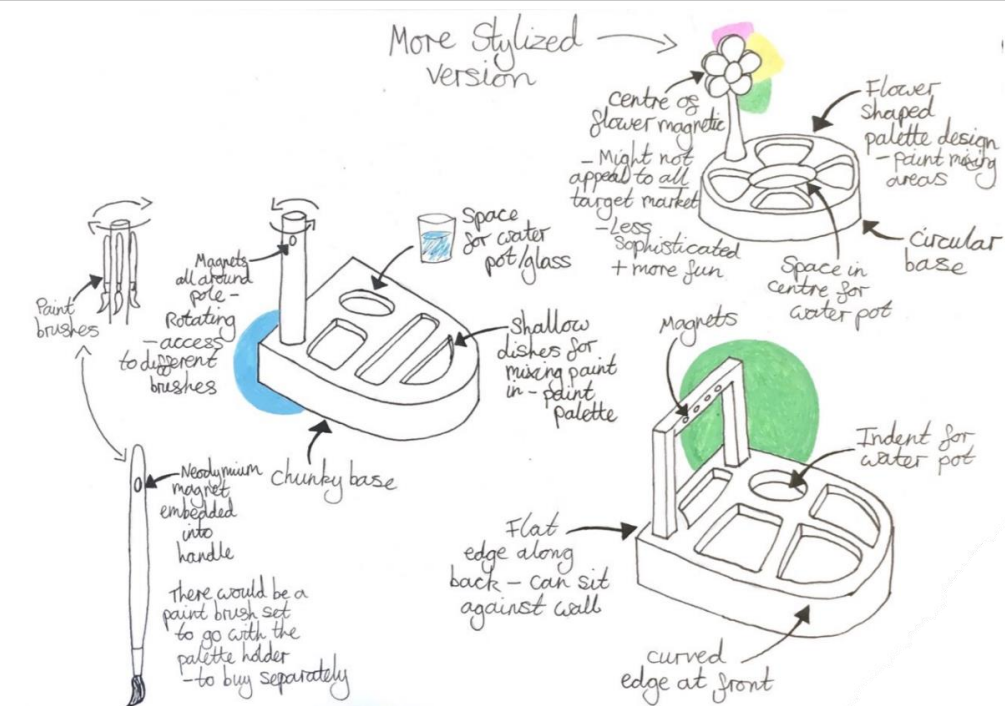 More Stylized
version
Centre of
flower magnetic
- Might not
appeal to all
target market
- Less
sophisticated
+ more fun
Flower
shaped
palette design
- paint mixing
areas
Circular
base
Space in
centre for
water pot
Space
for water
pot/glass
Magnets
all around
pole -
Rotating
- access
to different
brushes
Paint
brushes
Shallow
dishes for
mixing paint
in - paint
palette
chunky base
Neodymium
magnet
embedded
into
handle
There would be a
paint brush set
to go with the
palette holder
- to buy separately
Magnets
Indent for
water pot
Flat
edge along
back - can sit
against wall
curved
edge at front